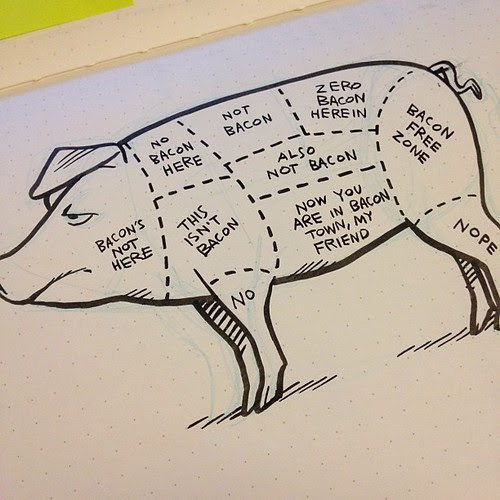 BACON'S
NOT
HERE
NO
BACON
HERE
THIS
ISN'T
BACON
NO
NOT
BACON
ALSO
NOT BACON
ZERO
BACON
HEREIN
NOW YOU
ARE IN BACON
TOWN, MY
FRIEND
BACON
FREE
ZONE
NOPE